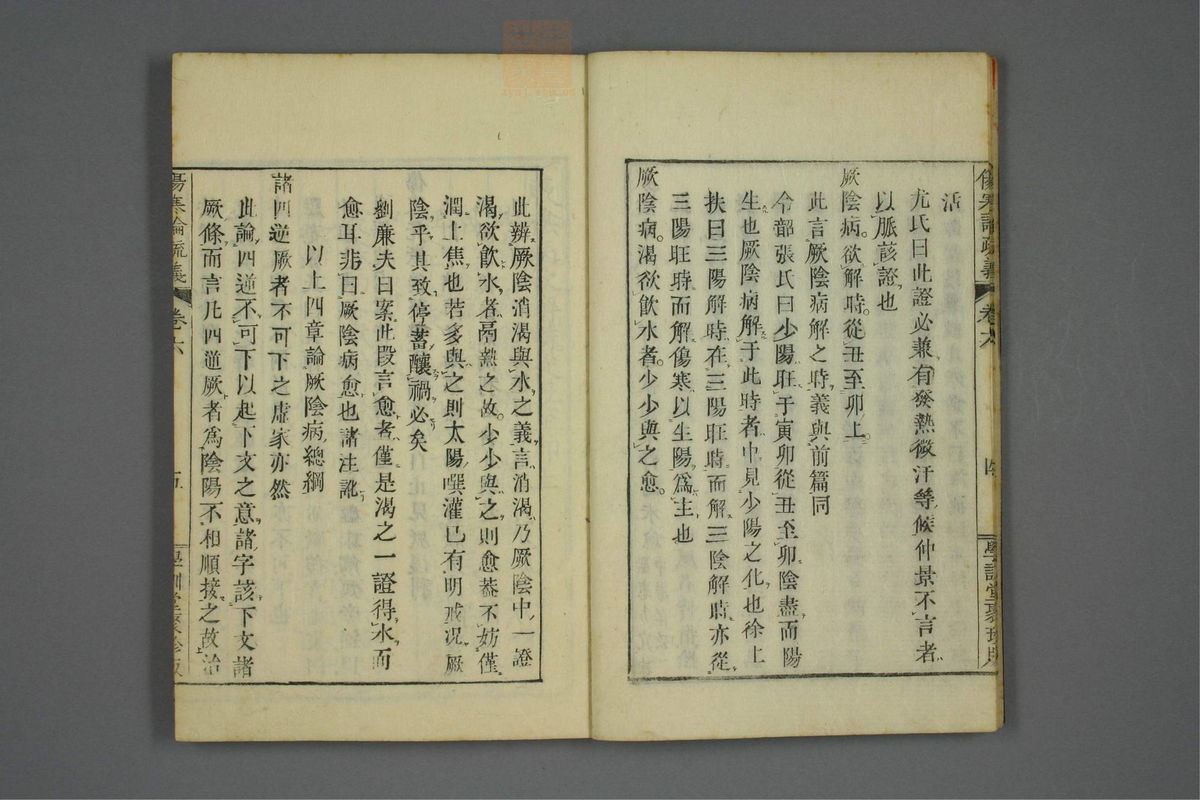 傷寒論疏義 卷六 四 學訓堂聚珍版
活
尤氏曰此證必兼有發熱微汗等候仲景不言者
以脈該證也
厥陰病欲解時從丑至卯上
此言厥陰病解之時義與前篇同
令韶張氏曰少陽旺于寅卯從丑至卯陰盡而陽
生也厥陰病解于此時者中見少陽之化也徐上
扶曰三陽解時在三陽旺時而解三陰解時亦從
三陽旺時而解傷寒以生陽爲主也
厥陰病渴欲飮水者少少與之愈
此辨厥陰消渴與水之義言消渴乃厥陰中一證
渴欲飮水者鬲熱之故少少與之則愈葢不妨僅
潤上焦也若多與之則太陽噀灌已有明戒况厥
陰乎其致停蓄釀禍必矣
劉廉夫曰案此段言愈者僅是渴之一證得水而
愈耳非曰厥陰病愈也諸注訛
以上四章論厥陰病總綱
諸四逆厥者不可下之虛家亦然
此論四逆不可下以起下文之意諸字該下文諸
厥條而言凡四逆厥者爲陰陽不相順接之故治
傷寒論疏義 卷六 五 學訓堂聚珍版